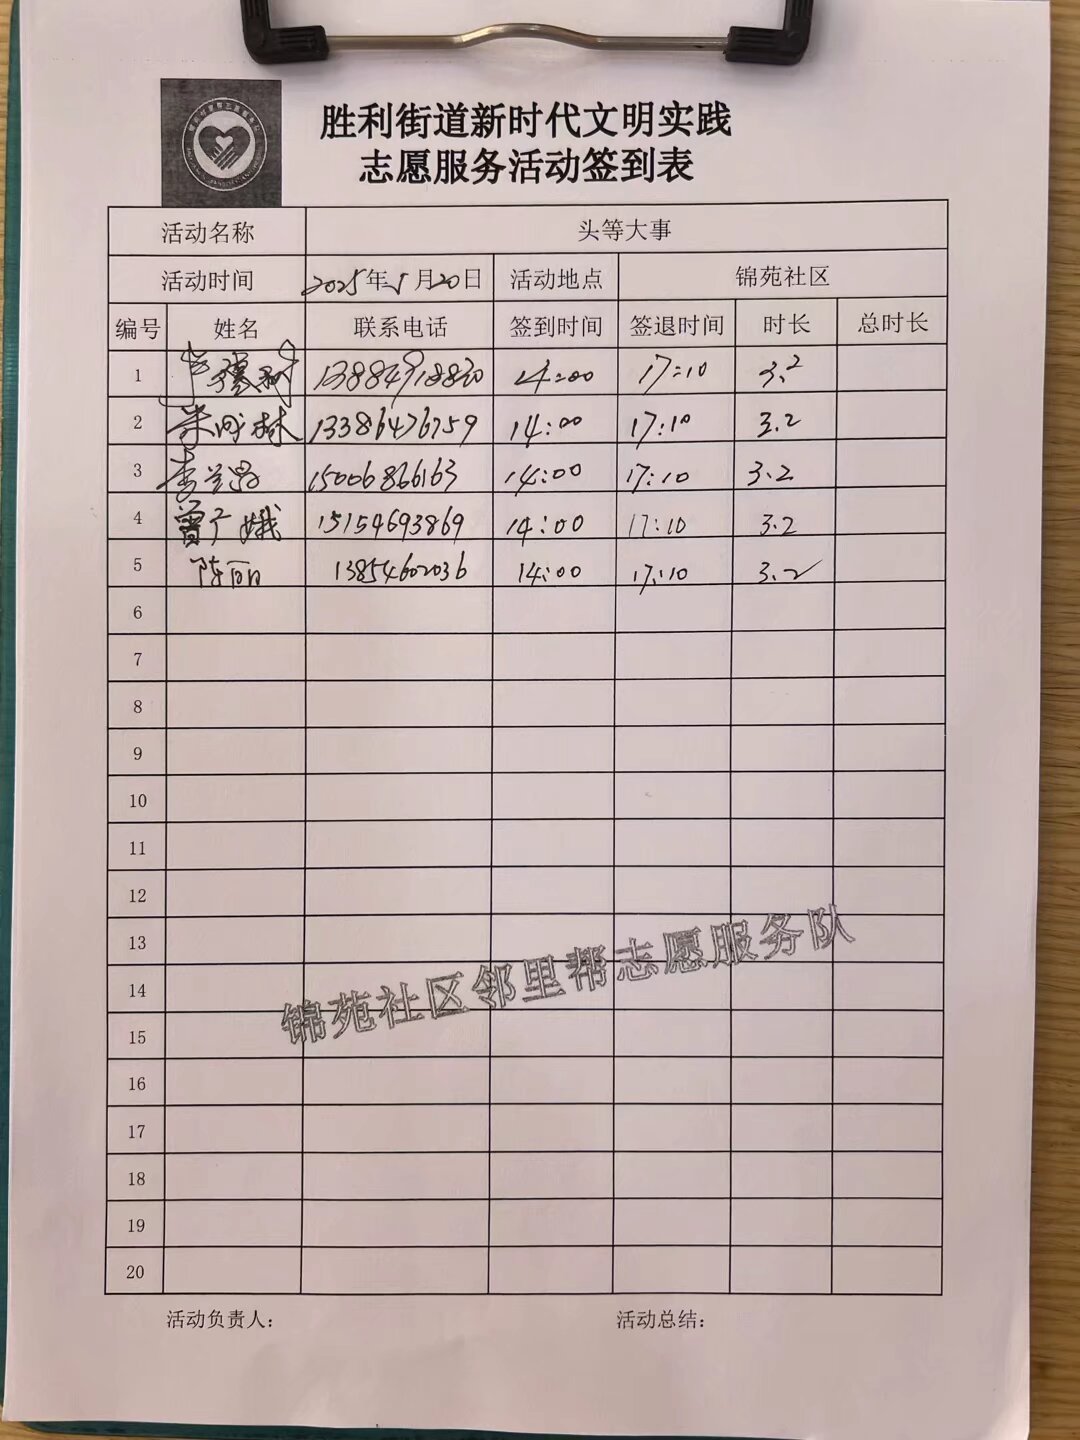 胜利街道新时代文明实践
志愿服务活动签到表
活动名称 头等大事
活动时间 2025年5月20日 活动地点 锦苑社区
编号 姓名 联系电话 签到时间 签退时间 时长 总时长
1 13884918830 14:00 17:10 3.2
2 朱 林 13386476759 14:00 17:10 3.2
3 李 15006866163 14:00 17:10 3.2
4 曾广娥 15154693869 14:00 17:10 3.2
5 陈丽 13854602036 14:00 17:10 3.2
6
7
8
9
10
11
12
13
14
15
16
17
18
19
20
锦苑社区邻里帮志愿服务队
活动负责人: 活动总结: